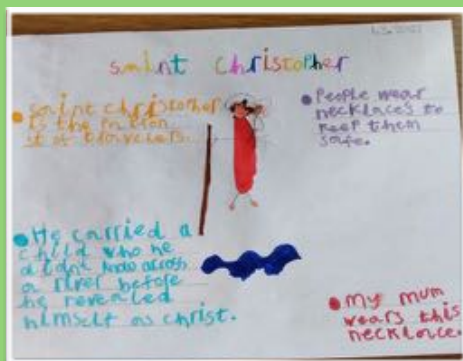 saint christopher
saint christopher
is the patron
st of travelers.
People wear
necklaces to
keep them
safe.
He carried a
child who he
didnt know across
a river before
he revealed
himself as christ.
my mum
wears this
necklace.